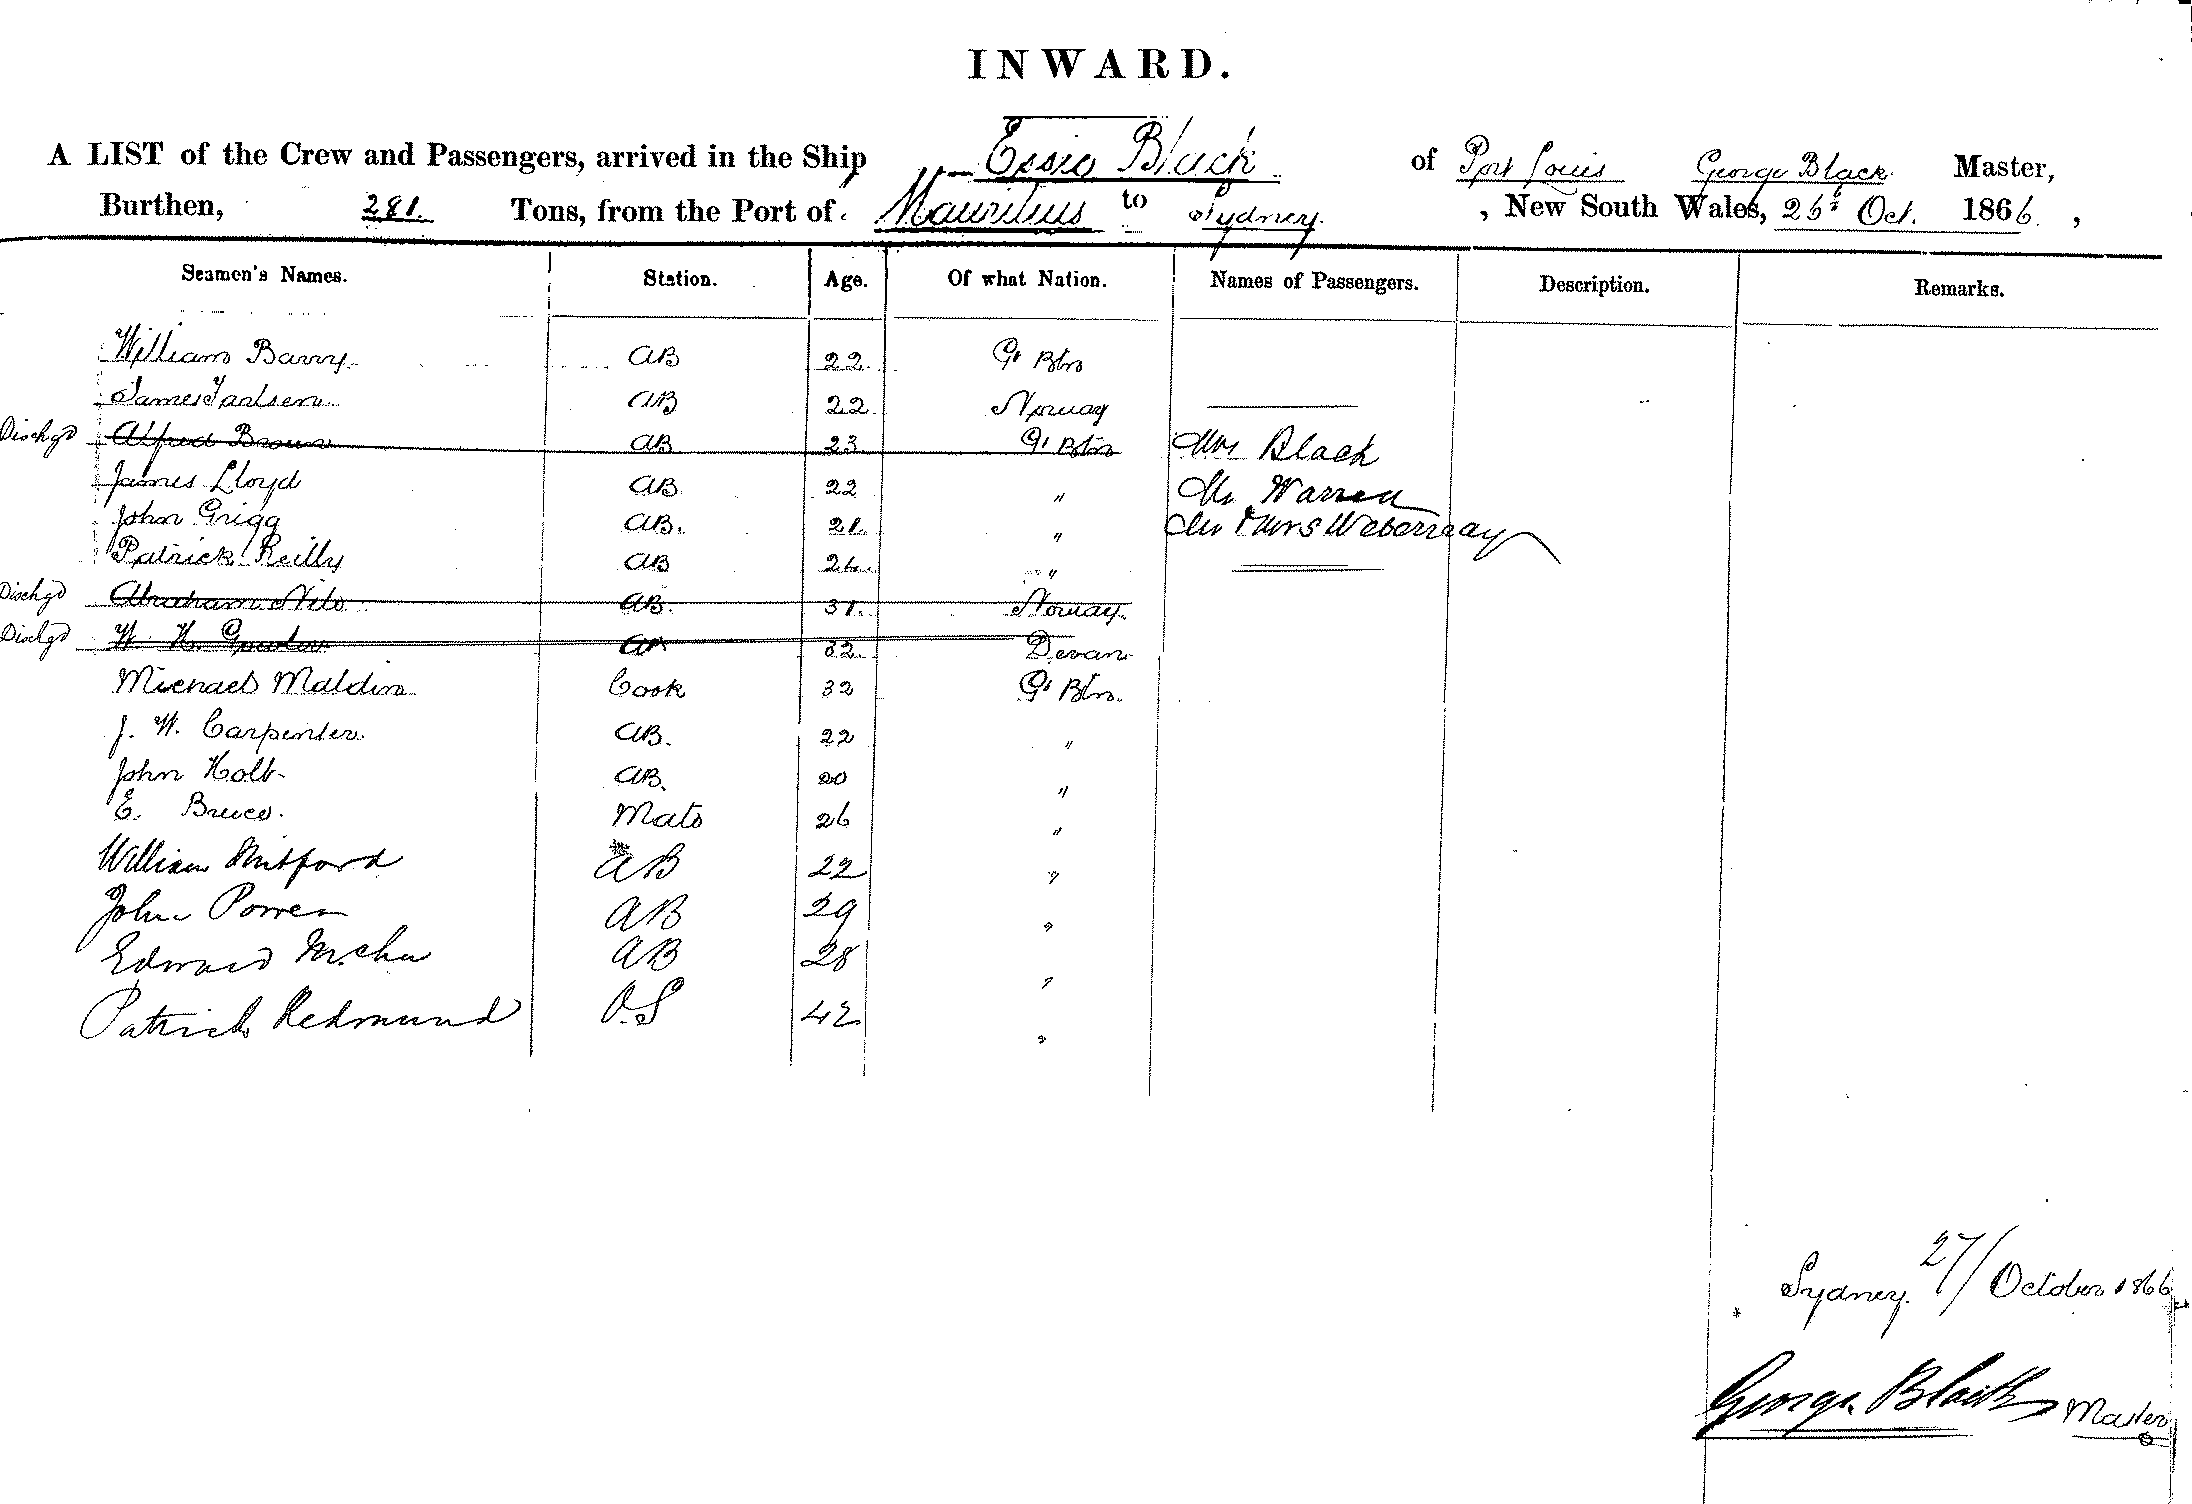 INWARD.
A LIST of the Crew and Passengers, arrived in the Ship Essie Black of Port Louis George Black Master,
Burthen, 281. Tons, from the Port of Mauritius to Sydney. , New South Wales, 26th Oct. 1866 ,
Seamen's Names. Station. Age. Of what Nation. Names of Passengers. Description. Remarks.
William Barry AB 22 Gt Btn
James AB 22 Norway
Dischgd Alfred Brown AB 23 Gt Btn Mrs Black
James Lloyd AB 22 " Mr Warren
John Grigg AB. 21 " Mr & Mrs
Patrick Reilly AB "
Dischgd Abraham AB. 31. Norway
Dischgd W. H. 32
Michael Maldin Cook 32 Gt Btn.
J. W. Carpenter AB. 22 "
John Holt AB. 20 "
E. Bruce. Mate 26 "
William Mitford AB 22 "
John Power AB 29 "
Edward AB 28 "
Patrick Redmund O.S 42 "
Sydney. 27/ October 1866
George Black Master